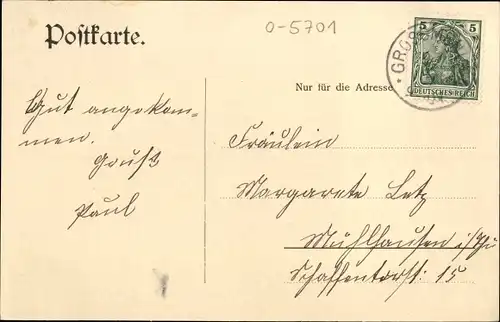 Postkarte.
0-5701
5 5
DEUTSCHES REICH
Nur für die Adresse
Gut angekom-
men.
Gruß
Paul
Fräulein
Margarete Letz
Mühlhausen i/Thü
Schaffentorstr: 15